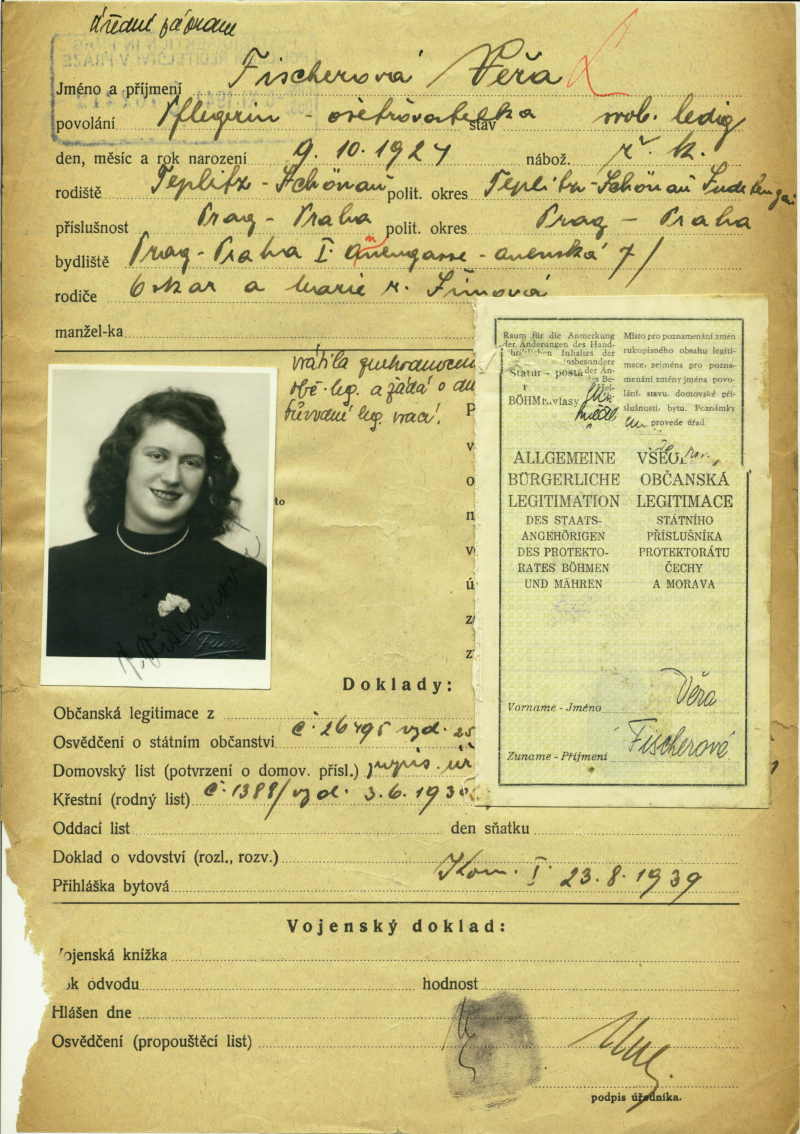 Jméno a příjmení Fischerová Věra
povolání Pflegerin - ošetřovatelka stav svob. ledig
den, měsíc a rok narození 9. 10. 1924 nábož. ř. k.
rodiště Teplitz-Schönau polit. okres Teplitz-Schönau Sudetengau
příslušnost Prag - Praha polit. okres Prag - Praha
bydliště Prag - Praha I. Annengasse - anenská 7/
rodiče Oskar a Marie r. Šímová
manžel-ka
vrátila
obč. leg. a žádá o
původní leg. vrací.
Raum für die Anmerkung
der Änderungen des Hand-
schriftlichen Inhaltes der
insbesondere
der Än-
BÖHM
Statur - posta
vlasy
Místo pro poznamenání změn
rukopisného obsahu legiti-
mace, zejména pro pozna-
menání změny jména povo-
lání, stavu, domovské pří-
slušnosti, bytu. Poznámky
provede úřad
ALLGEMEINE
BÜRGERLICHE
LEGITIMATION
DES STAATS-
ANGEHÖRIGEN
DES PROTEKTO-
RATES BÖHMEN
UND MÄHREN
OBČANSKÁ
LEGITIMACE
STÁTNÍHO
PŘÍSLUŠNÍKA
PROTEKTORÁTU
ČECHY
A MORAVA
Vorname - Jméno Věra
Zuname - Příjmení Fischerové
V. Fischerová
Doklady:
Občanská legitimace z
Osvědčení o státním občanství č. 26495 vyd. 25
Domovský list (potvrzení o domov. přísl.)
Křestní (rodný list) č. 1388/ vyd. 3. 6. 193
Oddací list den sňatku
Doklad o vdovství (rozl., rozv.)
Přihláška bytová Kom. I. 23. 8. 1939
Vojenský doklad:
ojenská knížka
ok odvodu hodnost
Hlášen dne
Osvědčení (propouštěcí list)
podpis úředníka.